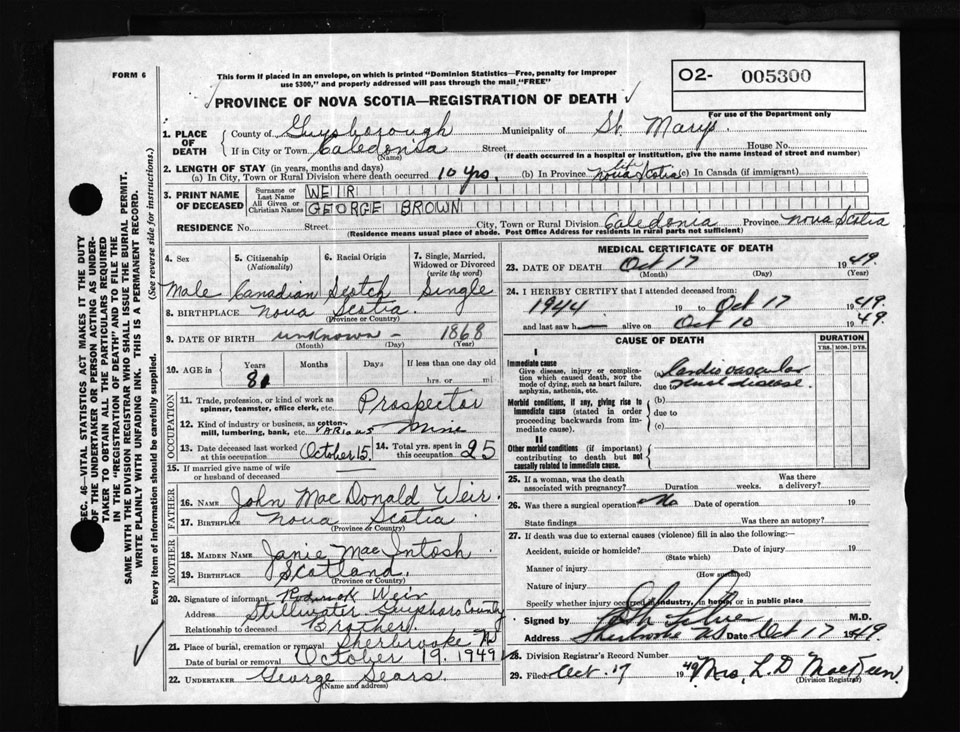 FORM 6
This form if placed in an envelope, on which is printed "Dominion Statistics—Free, penalty for improper
use $300," and properly addressed will pass through the mail "FREE"
O2- 005300
For use of the Department only
PROVINCE OF NOVA SCOTIA—REGISTRATION OF DEATH
1. PLACE OF DEATH
County of Guysborough Municipality of St. Marys
If in City or Town Caledonia Street House No.
(Name) (If death occurred in a hospital or institution, give the name instead of street and number)
2. LENGTH OF STAY (in years, months and days)
(a) In City, Town or Rural Division where death occurred 10 yrs. (b) In Province life Nova Scotia (c) In Canada (if immigrant)
3. PRINT NAME OF DECEASED
Surname or Last Name WEIR
All Given or Christian Names GEORGE BROWN
RESIDENCE No. Street City, Town or Rural Division Caledonia Province Nova Scotia
(Residence means usual place of abode. Post Office Address for residents in rural parts not sufficient)
4. Sex 5. Citizenship (Nationality) 6. Racial Origin 7. Single, Married, Widowed or Divorced (write the word)
Male Canadian Scotch Single
8. BIRTHPLACE Nova Scotia
(Province or Country)
9. DATE OF BIRTH unknown - 1868
(Month) (Day) (Year)
10. AGE in Years Months Days If less than one day old
81 hrs. or mi
OCCUPATION
11. Trade, profession, or kind of work as
spinner, teamster, office clerk, etc. Prospector
12. Kind of industry or business, as cotton-
mill, lumbering, bank, etc. VARIOUS Mine
13. Date deceased last worked at this occupation October 15. 14. Total yrs. spent in this occupation 25
15. If married give name of wife
or husband of deceased
FATHER
16. NAME John MacDonald Weir.
17. BIRTHPLACE Nova Scotia
(Province or Country)
MOTHER
18. MAIDEN NAME Janie MacIntosh
19. BIRTHPLACE Scotland.
(Province or Country)
20. Signature of informant Roderick Weir
Address Stillwater Guysboro County
Relationship to deceased Brother
21. Place of burial, cremation or removal Sherbrooke NS
Date of burial or removal October 19, 1949
22. UNDERTAKER George Sears
(Name and address)
MEDICAL CERTIFICATE OF DEATH
23. DATE OF DEATH Oct 17 1949.
(Month) (Day) (Year)
24. I HEREBY CERTIFY that I attended deceased from:
1944 19 to Oct 17 1949.
and last saw h alive on Oct 10 1949
CAUSE OF DEATH DURATION
YRS. MOS. DYS.
I
Immediate cause
Give disease, injury or complica-
tion which caused death, not the
mode of dying, such as heart failure,
asphyxia, asthenia, etc.
(a) Cardiovascular
due to
disease.
Morbid conditions, if any, giving rise to
immediate cause (stated in order
proceeding backwards from im-
mediate cause).
(b)
due to
(c)
II
Other morbid conditions (if important)
contributing to death but not
causally related to immediate cause.
25. If a woman, was the death
associated with pregnancy? Duration weeks. Was there a delivery?
26. Was there a surgical operation? No Date of operation 19
State findings Was there an autopsy?
27. If death was due to external causes (violence) fill in also the following:
Accident, suicide or homicide? Date of injury 19
(State which)
Manner of injury
(How sustained)
Nature of injury
Specify whether injury occurred in industry, in home or in public place
Signed by M.D.
Address Sherbrooke NS Date Oct 17 1949
28. Division Registrar's Record Number
29. Filed Oct. 17 1949 Mrs. L. D MacKeen.
(Division Registrar)
SEC. 46—VITAL STATISTICS ACT MAKES IT THE DUTY
OF THE UNDERTAKER OR PERSON ACTING AS UNDER-
TAKER TO OBTAIN ALL THE PARTICULARS REQUIRED
IN THE "REGISTRATION OF DEATH" AND TO FILE THE
SAME WITH THE DIVISION REGISTRAR WHO SHALL ISSUE THE BURIAL PERMIT.
WRITE PLAINLY WITH UNFADING INK. THIS IS A PERMANENT RECORD.
Every item of information should be carefully supplied. (See reverse side for instructions.)